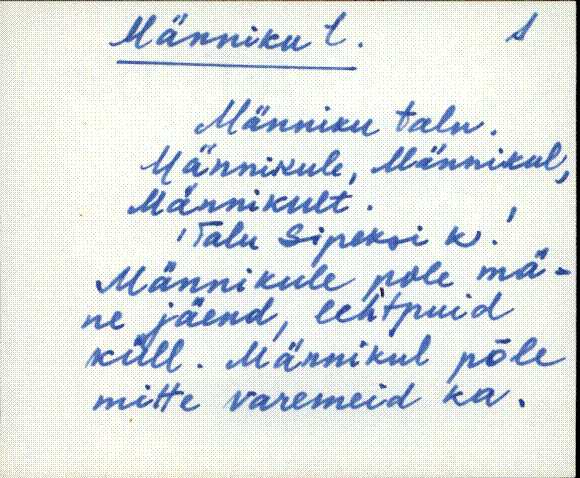 Männiku t. 1
Männiku talu.
Männikule, Männikul,
Männikult.
'Talu Sipeksi k.'
Männikule pole mä-
ne jäend, lehtpuid
küll. Männikul põle
mitte varemeid ka.